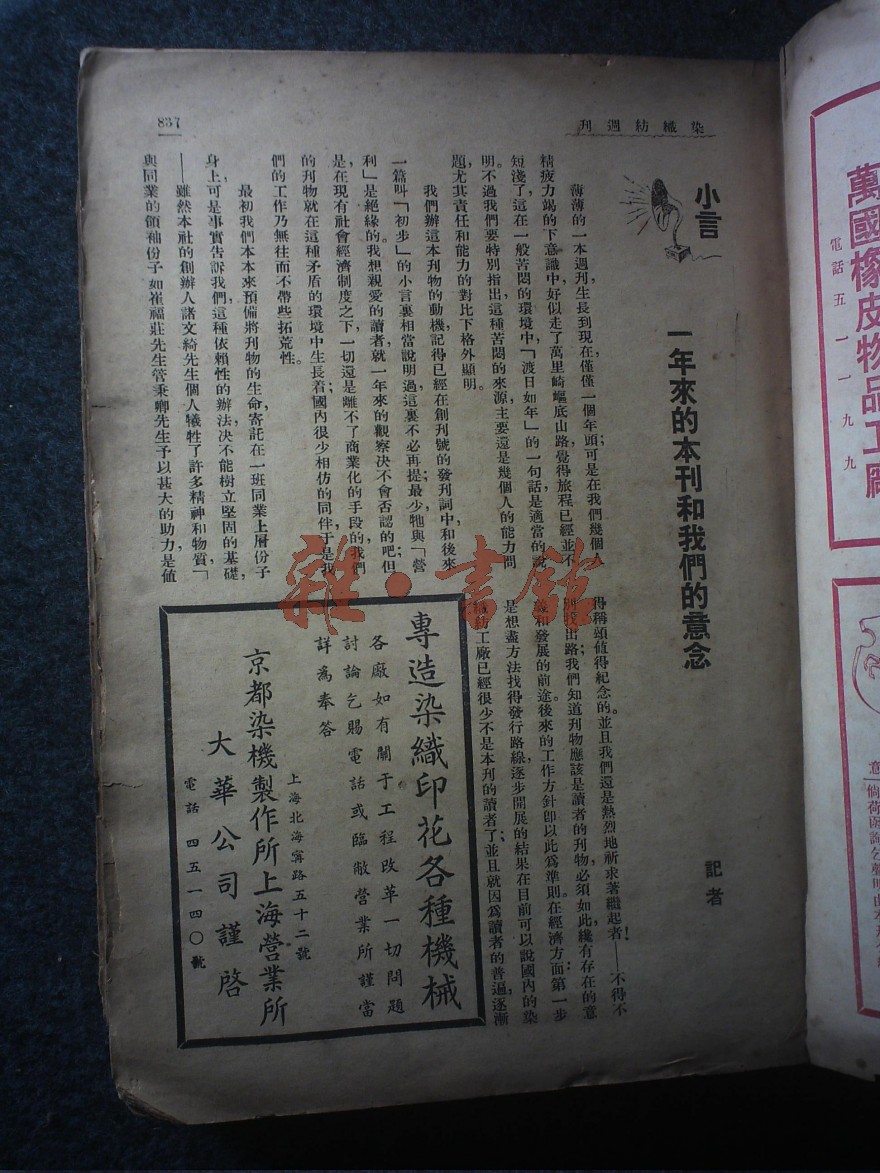 染織紡週刊
837
小言
一年來的本刊和我們的意念
記者
薄薄的一本週刊生長到現在僅僅一個年頭；可是在我們幾個人
精疲力竭的下意識中，好似走了萬里崎嶇底山路，覺得旅程已經並不
短淺了，這在一般苦悶的環境中，「渡日如年」的一句話是適當的說
明。不過我們要特別指出，這種苦悶的來源，主要還是幾個人的能力問
題，尤其責任和能力的對比下格外顯明。
我們辦這本刊物的動機，記得已經在創刊號的發刊詞中和後來
一篇叫「初步」的小言裏相當說明過，這裏不必再提；最少牠與「營
利」是絕緣的。我想親愛的讀者，就一年來的觀察決不會否認的吧；但
是在現有社會經濟制度之下，一切還是離不了商業化的手段的，我們
的刊物就在這種矛盾的環境中生長着；國內很少相仿的同伴，于是我
們的工作乃無往而不帶些拓荒性。
最初我們本本來預備將刊物的生命，寄託在一班同業上層份子
身上，可是事實告訴我們，這種依賴性的辦法決不能樹立堅固的基礎，
——雖然本社的創辦人諸文綺先生個人犧牲了許多精神和物質，「
與同業的領袖份子如崔福莊先生管秉卿先生予以甚大的助力，是值
得稱頌值得紀念的。並且我們還是熱烈地祈求著繼起者！——不得不
別找出路，我們知道刊物應該是讀者的刊物，必須如此纔有存在的意
義和發展的前途。後來的工作方針卽以此爲準則。在經濟方面第一步
是想盡方法找得發行路線，逐步開展的結果，在目前可以說國內的染
織紡工廠已經很少不是本刊的讀者了；並且就因爲讀者的普遍，逐漸
專造染織印花各種機械
各廠如有關于工程改革一切問題
討論乞賜電話或臨敝營業所謹當
詳為奉答
上海北海寗路五十二號
京都染機製作所上海營業所
大華公司謹啓
電話 四五一四〇號
雜·書館
萬國橡皮物品工廠
電話五一一九九